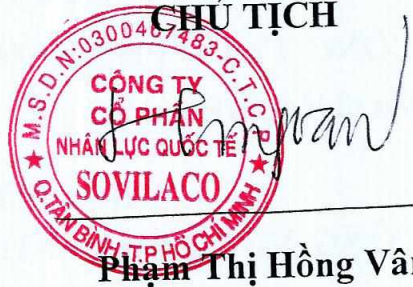 CHỦ TỊCH
M.S.D.N:0300467483-C.T.C.P
CÔNG TY
CỔ PHẦN
NHÂN LỰC QUỐC TẾ
SOVILACO
Q.TÂN BÌNH-T.P HỒ CHÍ MINH
Phạm Thị Hồng Vân